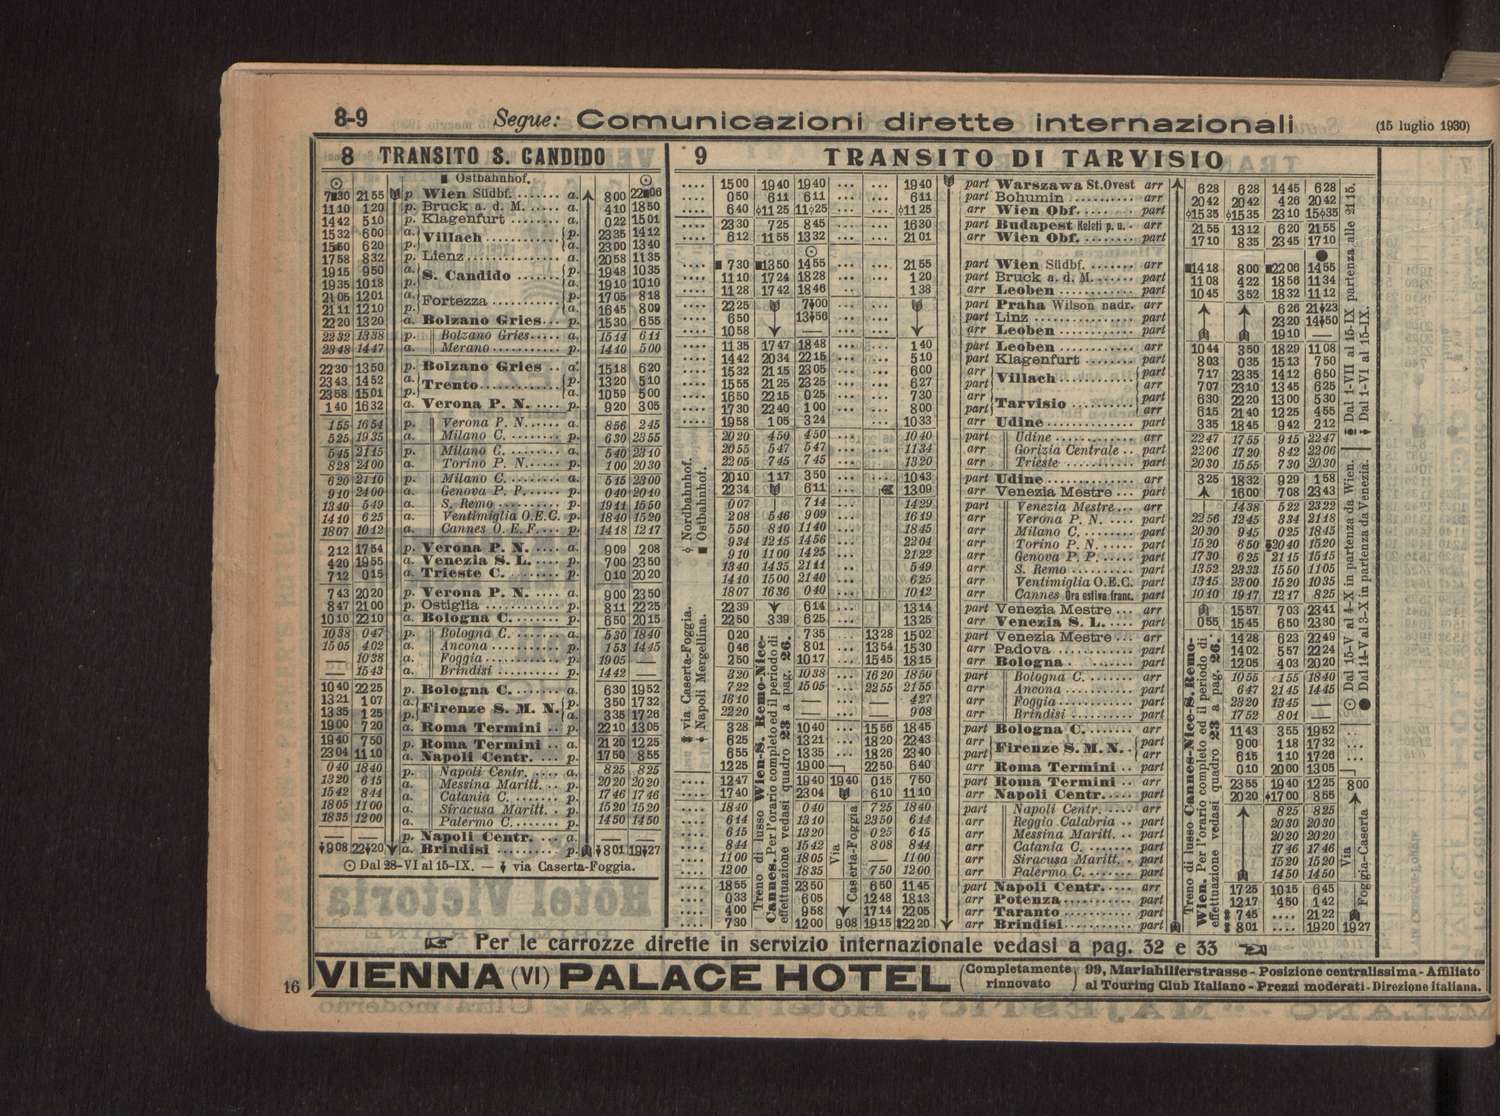 8-9 Segue: Comunicazioni dirette internazionali (15 luglio 1930)
8 TRANSITO S. CANDIDO
■ Ostbahnhof.
7■30 21 55 p. Wien Südbf. a. 8 00 22■06
11 10 1 20 p. Bruck a. d. M. a. 4 10 18 50
14 42 5 10 p. Klagenfurt a. 0 22 15 01
15 32 6 00 a. Villach p. 23 35 14 12
15 50 6 20 p. a. 23 00 13 40
17 58 8 32 p. Lienz a. 20 58 11 35
19 15 9 50 a. S. Candido p. 19 48 10 35
19 35 10 18 p. a. 19 10 10 10
21 05 12 01 a. Fortezza p. 17 05 8 18
21 11 12 10 p. a. 16 45 8 09
22 20 13 20 a. Bolzano Gries p. 15 30 6 55
22 32 13 38 p. Bolzano Gries a. 15 14 6 11
23 48 14 47 a. Merano p. 14 10 5 00
22 30 13 50 p. Bolzano Gries a. 15 18 6 20
23 43 14 52 a. Trento p. 13 20 5 10
23 58 15 01 p. a. 10 59 5 00
1 40 16 32 a. Verona P. N. p. 9 20 3 05
1 55 16 54 p. Verona P. N. a. 8 56 2 45
5 25 19 35 a. Milano C. p. 6 30 23 55
5 45 21 15 p. Milano C. a. 5 40 23 10
8 28 24 00 a. Torino P. N. p. 1 00 20 30
6 20 21 10 p. Milano C. a. 5 15 23 00
9 10 24 00 a. Genova P. P. p. 0 40 20 40
13 40 5 49 a. S. Remo p. 19 11 15 50
14 10 6 25 a. Ventimiglia O.E.C. p. 18 40 15 20
18 07 10 12 a. Cannes O. E. F. p. 14 18 12 17
2 12 17 54 p. Verona P. N. a. 9 09 2 08
4 20 19 55 a. Venezia S. L. p. 7 00 23 50
7 12 0 15 a. Trieste C. p. 0 10 20 20
7 43 20 20 p. Verona P. N. a. 9 00 23 50
8 47 21 00 p. Ostiglia a. 8 11 22 25
10 10 22 10 a. Bologna C. p. 6 50 20 15
10 38 0 47 p. Bologna C. a. 5 30 18 40
15 05 4 02 a. Ancona p. 1 53 14 45
— 10 38 a. Foggia p. 19 05 —
— 15 43 a. Brindisi p. 14 42 —
10 40 22 25 p. Bologna C. a. 6 30 19 52
13 21 1 07 a. Firenze S. M. N. p. 3 50 17 32
13 35 1 25 p. a. 3 35 17 26
19 00 7 20 a. Roma Termini p. 22 10 13 05
19 40 7 50 p. Roma Termini a. 21 20 12 25
23 04 11 10 a. Napoli Centr. p. 17 50 8 55
0 40 18 40 p. Napoli Centr. a. 8 25 8 25
13 20 6 15 a. Messina Maritt. p. 20 20 20 20
15 42 8 44 a. Catania C. p. 17 46 17 46
18 05 11 00 a. Siracusa Maritt. p. 15 20 15 20
18 35 12 00 a. Palermo C. p. 14 50 14 50
— — p. Napoli Centr. a. — —
9 08 22 20 a. Brindisi p. 8 01 19 27
⊙ Dal 28-VI al 15-IX. — via Caserta-Foggia.
9 TRANSITO DI TARVISIO
.... 15 00 19 40 19 40 ... ... 19 40 part Warszawa St.Ovest arr 6 28 6 28 14 45 6 28
.... 0 50 6 11 6 11 ... ... 6 11 part Bohumin arr 20 42 20 42 4 26 20 42
.... 6 40 11 25 11 25 ... ... 11 25 arr Wien Obf. part 15 35 15 35 23 10 15 35
.... 23 30 7 25 8 45 ... ... 16 30 part Budapest Keleti p. u. arr 21 55 13 12 6 20 21 55
.... 6 12 11 55 13 32 ... ... 21 01 arr Wien Obf. part 17 10 8 35 23 45 17 10
.... ■7 30 ■13 50 14 55 ... ... 21 55 part Wien Südbf. arr ■14 18 8 00 ■22 06 14 55
.... 11 10 17 24 18 28 ... ... 1 20 part Bruck a. d. M. arr 11 08 4 22 18 56 11 34
.... 11 28 17 42 18 46 ... ... 1 38 arr Leoben part 10 45 3 52 18 32 11 12
.... 22 25 7 00 part Praha Wilson nadr. arr 6 26 21 23
.... 6 50 13 56 part Linz arr 23 20 14 50
.... 10 58 — arr Leoben part 19 10 —
.... 11 35 17 47 18 48 ... ... 1 40 part Leoben arr 10 44 3 50 18 29 11 08
.... 14 42 20 34 22 15 ... ... 5 10 part Klagenfurt part 8 03 0 35 15 13 7 50
.... 15 32 21 15 23 05 ... ... 6 00 arr Villach part 7 17 23 35 14 12 6 50
.... 15 55 21 25 23 25 ... ... 6 27 part arr 7 07 23 10 13 45 6 25
.... 16 50 22 15 0 25 ... ... 7 30 arr Tarvisio part 6 30 22 20 13 00 5 30
.... 17 30 22 40 1 00 ... ... 8 00 part arr 6 15 21 40 12 25 4 55
.... 19 58 1 05 3 24 ... ... 10 33 arr Udine part 3 35 18 45 9 42 2 12
20 20 4 50 4 50 ... ... 10 40 part Udine arr 22 47 17 55 9 15 22 47
20 55 5 47 5 47 ... ... 11 34 arr Gorizia Centrale part 22 06 17 20 8 42 22 06
22 05 7 45 7 45 ... ... 13 20 arr Trieste part 20 30 15 55 7 30 20 30
20 10 1 17 3 50 ... ... 10 43 part Udine arr 3 25 18 32 9 29 1 58
22 34 6 11 13 09 arr Venezia Mestre part 16 00 7 08 23 43
0 07 7 14 14 29 part Venezia Mestre arr 14 38 5 22 23 22
2 08 5 46 9 09 16 19 arr Verona P. N. part 22 56 12 45 3 34 21 18
5 50 8 10 11 40 18 45 arr Milano C. part 20 30 9 45 0 25 18 45
9 34 12 15 14 56 22 04 arr Torino P. N. part 15 20 6 50 20 40 15 20
9 10 11 00 14 25 21 22 arr Genova P. P. part 17 30 6 25 21 15 15 15
13 40 14 35 21 11 5 49 arr S. Remo part 13 52 23 33 15 50 11 05
14 10 15 00 21 40 6 25 arr Ventimiglia O.E.C. part 13 15 23 00 15 20 10 35
18 07 16 36 0 40 10 12 arr Cannes Ora estiva franc. part 10 10 19 17 12 17 8 25
22 39 6 14 13 14 part Venezia Mestre arr 15 57 7 03 23 41
22 50 3 39 6 25 13 25 arr Venezia S. L. part 0 55 15 45 6 50 23 30
0 20 7 35 13 28 15 02 part Venezia Mestre arr 14 28 6 23 22 49
0 46 8 01 13 54 15 30 arr Padova part 14 02 5 57 22 24
2 50 10 17 15 45 18 15 arr Bologna part 12 05 4 03 20 20
3 20 10 38 16 20 18 50 part Bologna C. arr 10 55 1 55 18 40
7 22 15 05 22 55 21 55 arr Ancona part 6 47 21 45 14 45
16 10 — — 4 27 arr Foggia part 23 20 13 45 —
22 20 — — 9 08 arr Brindisi part 17 52 8 01 —
3 28 10 40 15 56 18 45 part Bologna C. arr 11 43 3 55 19 52
6 25 13 21 18 20 22 43 arr Firenze S. M. N. part 9 00 1 18 17 32
6 55 13 35 18 26 23 40 part arr 6 15 1 10 17 26
12 25 19 00 22 50 6 40 arr Roma Termini part 0 10 20 00 13 05
.... 12 47 19 40 19 40 0 15 7 50 part Roma Termini arr 23 55 19 40 12 25 8 00
.... 17 40 23 04 6 10 11 10 arr Napoli Centr. part 20 20 17 00 8 55
.... 18 40 0 40 7 25 18 40 part Napoli Centr. arr 8 25 8 25
.... 6 14 13 10 23 50 6 14 arr Reggio Calabria part 20 30 20 30
.... 6 15 13 20 0 25 6 15 arr Messina Maritt. part 20 20 20 20
.... 8 44 15 42 8 08 8 44 arr Catania C. part 17 46 17 46
.... 11 00 18 05 — 11 00 arr Siracusa Maritt. part 15 20 15 20
.... 12 00 18 35 7 50 12 00 arr Palermo C. part 14 50 14 50
.... 18 55 23 50 6 50 11 45 part Napoli Centr. arr 17 25 10 15 6 45
.... 0 33 6 05 12 48 18 13 arr Potenza part 12 17 4 50 1 42
.... 4 00 9 58 17 14 22 05 arr Taranto part 7 45 .... 21 22
.... 7 30 12 00 9 08 19 15 22 20 arr Brindisi part 8 01 .... 19 20 19 27
Nordbahnhof.
■ Ostbahnhof.
via Caserta-Foggia.
Napoli Mergellina.
Treno di lusso Wien-S. Remo-Nice-
Cannes. Per l'orario completo ed il periodo di
effettuazione vedasi quadro 23 a pag. 26.
Via
Caserta-Foggia
Treno di lusso Cannes-Nice-S. Remo-
Wien. Per l'orario completo ed il periodo di
effettuazione vedasi quadro 23 a pag. 26.
Via
Foggia-Caserta
⊙ Dal 15-V al 4-X in partenza da Wien.
● Dal 14-V al 3-X in partenza da Venezia.
Dal 1-VII al 15-IX partenza alle 21 15.
Dal 1-VI al 15-IX.
☞ Per le carrozze dirette in servizio internazionale vedasi a pag. 32 e 33 ☜
VIENNA (VI) PALACE HOTEL (Completamente rinnovato) 99, Mariahilferstrasse - Posizione centralissima - Affiliato
al Touring Club Italiano - Prezzi moderati - Direzione italiana.
16